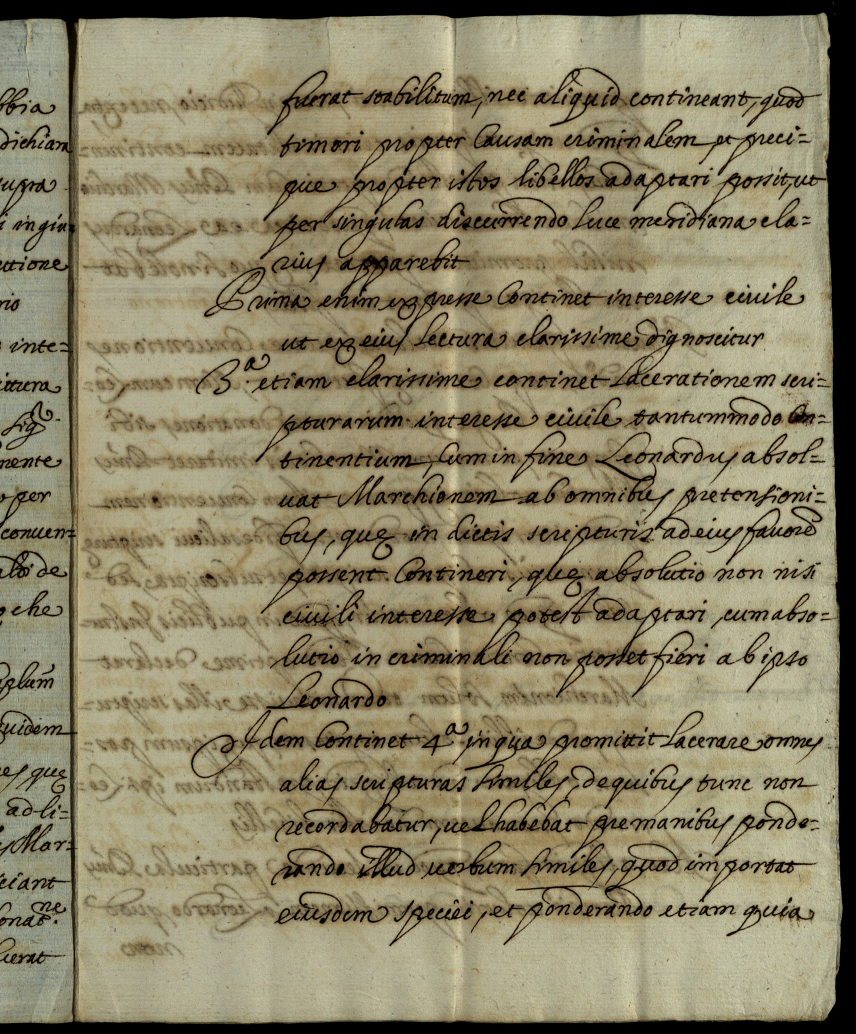 fuerat stabilitum, nec aliquid contineant, quod
timori propter Causam criminalem et preci=
pue propter istos libellos adaptari possit, ut
per singulas discurrendo luce meridiana cla=
rius apparebit
Prima enim expresse Continet interesse civile
ut ex eius Lectura clarissime dignoscitur
3.ª etiam clarissime continet Lacerationem scri=
pturarum interesse civile tantummodo Con=
tinentium, Cum in fine Leonardus absol=
uat Marchionem ab omnibus pretensioni=
bus, quę in dictis scripturis ad eius favorẽ
possent Contineri, quę absolutio non nisi
civili interesse potest adaptari, cum abso=
lutio in criminali non posset fieri ab ipso
Leonardo
Idem Continet 4.ª in qua promittit Lacerare omnes
alias scripturas similes, de quibus tunc non
recordabatur, uel habebat pre manibus ponde=
rando illud uerbum similes, quod importat
eiusdem speciei, et ponderando etiam quia
bbia
dichiara
supra
i ingiu=
rio
inte=
nente
o per
conuen=
o che
uidem
es quę
ad li=
s Mar=
ciant
uerat